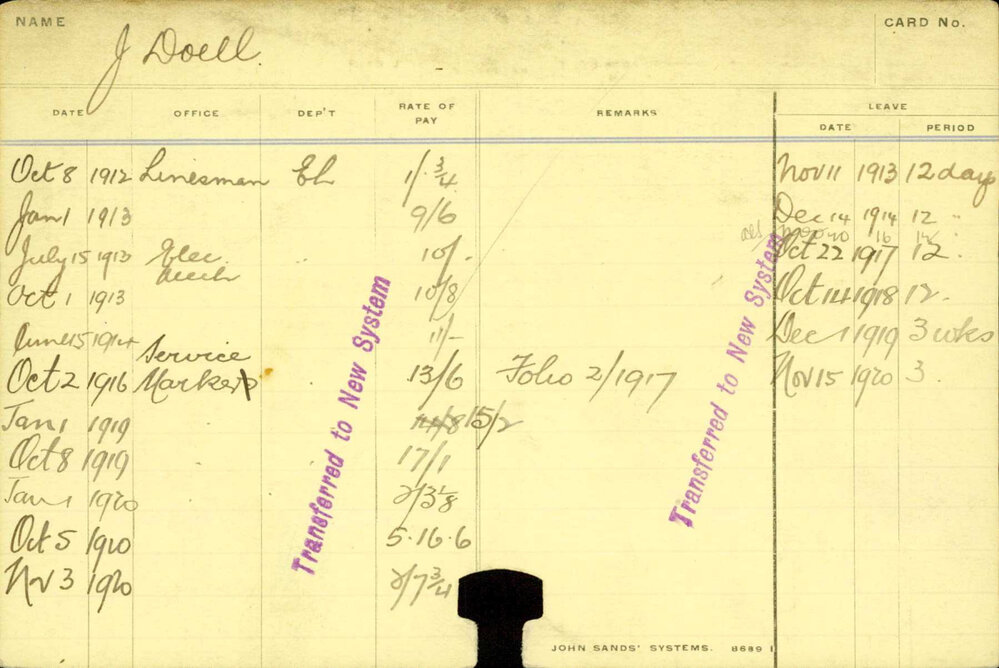 NAME
CARD No.
J Doell.
DATE OFFICE DEP'T RATE OF PAY REMARKS LEAVE
DATE PERIOD
Oct 8 1912 Linesman El 1/.3/4 Nov 11 1913 12 days
Jan 1 1913 9/6 Dec 14 1914 12 "
July 15 1913 Elec 10/- Oct 22 1917 12.
Mech
Oct 1 1913 10/8 Oct 14 1918 12.
June 15 1914 11/- Dec 1 1919 3 wks
Service
Oct 2 1916 Marker 13/6 Folio 2/1917 Nov 15 1920 3.
Jan 1 1919 14/8 15/2
Oct 8 1919 17/1
Jan 1 1920 2/3 1/8
Oct 5 1920 5.16.6
Nov 3 1920 2/7 3/4
Transferred to New System
Transferred to New System
JOHN SANDS' SYSTEMS. 8689